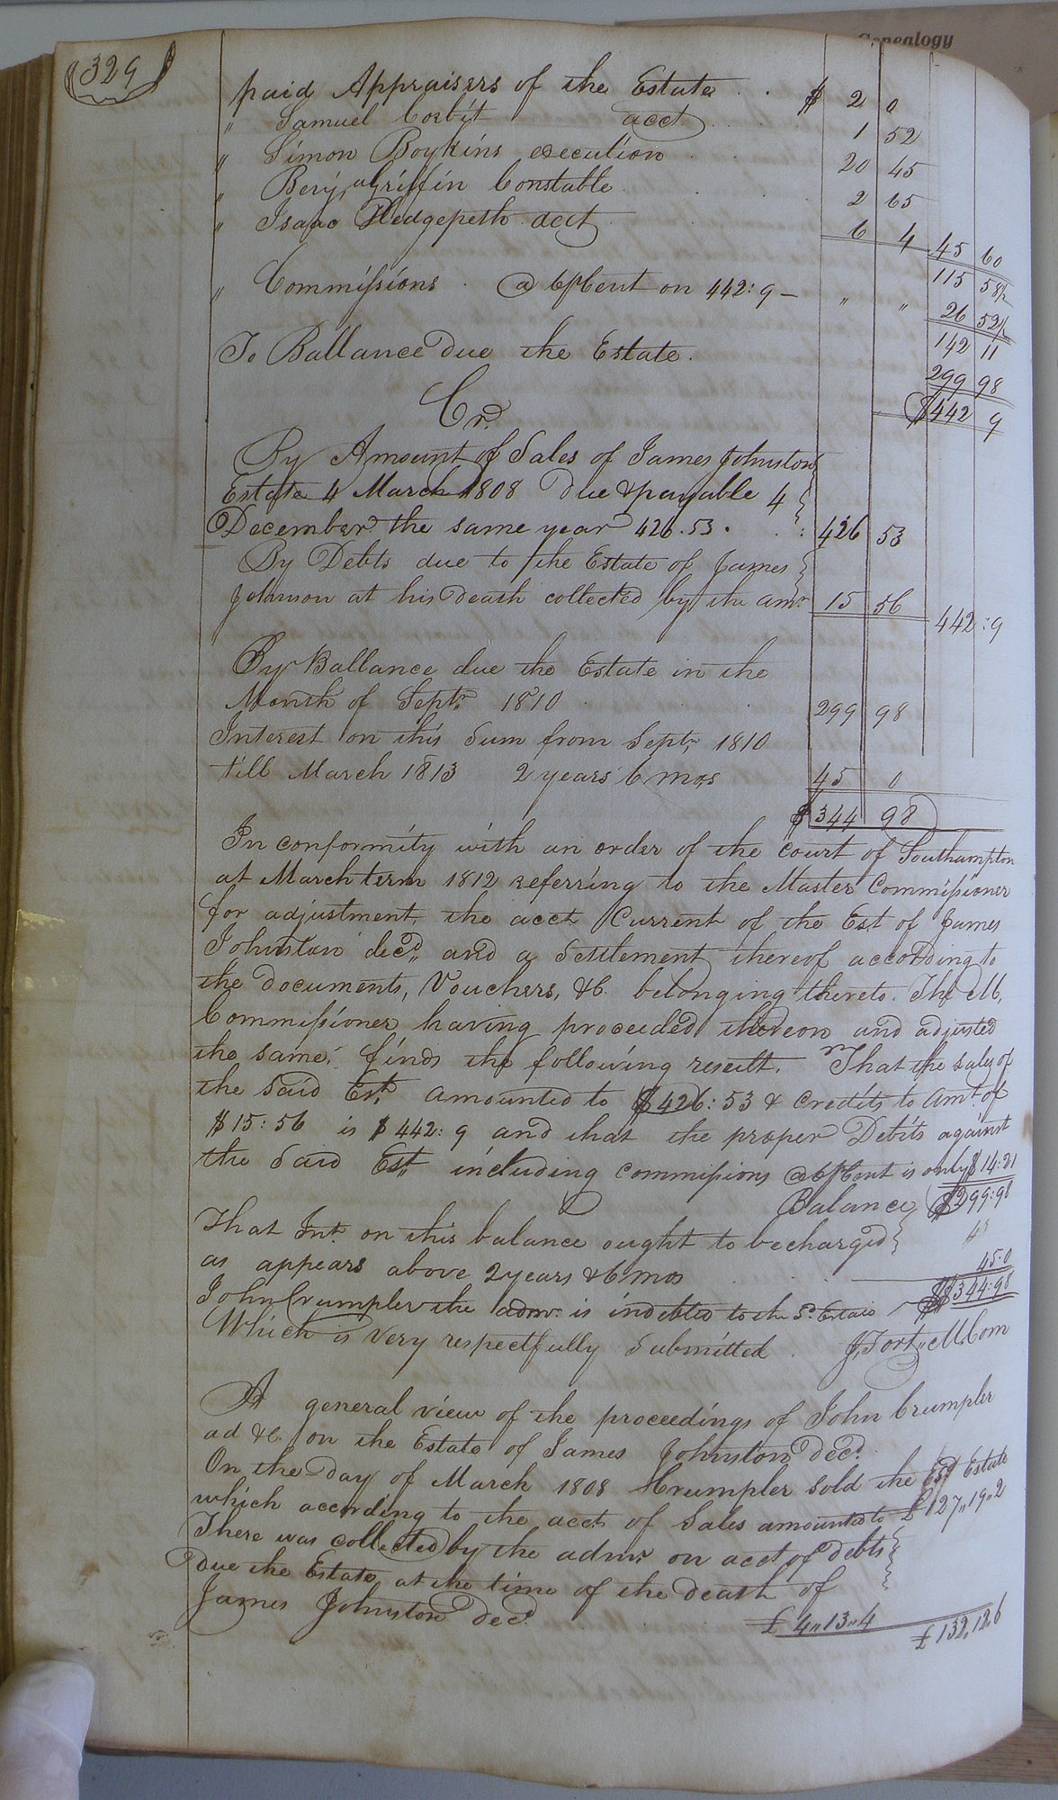 Genealogy
329
paid Appraisers of the Estate . . $ 2 0
" Samuel Corbit acct 1 52
" Simon Boykins execution . . 20 45
" Benj. Griffin Constable . . 2 65
" Isaac Hedgepeth acct 6 4 45 60
115 58½
" Commissions . @ 6 ⅌Cent on 442:9 – " " 26 52½
142 11
To Ballance due the Estate. 299 98
$442 9
Cr.
By Amount of Sales of James Johnston
Estate 4 March 1808 due & payable 4
December the same year 426.53. . : 426 53
By Debts due to the Estate of James
Johnson at his death collected by the amr. 15 56 442:9
By Ballance due the Estate in the
Month of Septr. 1810 . . 299 98
Interest on this Sum from Septr. 1810
till March 1813 2 years 6 mos 45 0
$ 344 98
In conformity with an order of the court of Southampton
at March term 1812 referring to the Master Commissioner
for adjustment, the acct Current of the Est of James
Johnston decd. and a Settlement thereof according to
the documents, Vouchers, &C. belonging thereto. The M.
Commissioner having proceeded thereon and adjusted
the same, finds the following result. That the sales of
the said Est. amounted to $426:53 & credits to Amt. of
$15:56 is $442:9 and that the proper Debits against
the said Est. including commissions @ 6 ⅌Cent is only $14:21
Balance $299:98
That Int. on this balance ought to be charged
as appears above 2 years & 6 mos . . 45.0
John Crumpler the admr. is indebted to the Sd. Estate $344:98
Which is very respectfully submitted. J. Fort, M. Com
A general view of the proceedings of John Crumpler
ad &c. on the Estate of James Johnston Decd.
On the day of March 1808 Crumpler sold the Estate
which according to the acct of Sales amounted to £127"19"2
There was collected by the admr. on acct of debts
due the Estate at the time of the death of
James Johnston Decd. . . £4"13"4 £132,12,6